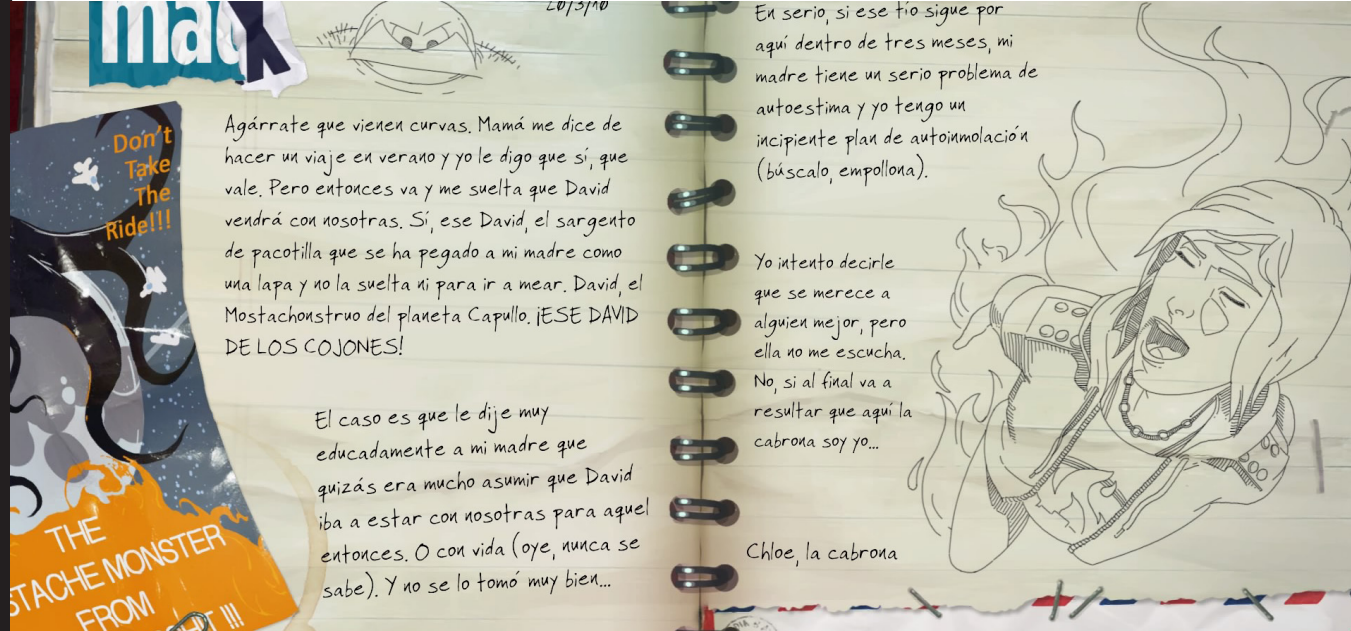 20/3/10
Don't
Take
The
Ride!!!
Agárrate que vienen curvas. Mamá me dice de
hacer un viaje en verano y yo le digo que sí, que
vale. Pero entonces va y me suelta que David
vendrá con nosotras. Sí, ese David, el sargento
de pacotilla que se ha pegado a mi madre como
una lapa y no la suelta ni para ir a mear. David, el
Mostachonstruo del planeta Capullo. ¡ESE DAVID
DE LOS COJONES!
El caso es que le dije muy
educadamente a mi madre que
quizás era mucho asumir que David
iba a estar con nosotras para aquel
entonces. O con vida (oye, nunca se
sabe). Y no se lo tomó muy bien...
THE
STACHE MONSTER
FROM
!!!
En serio, si ese tío sigue por
aquí dentro de tres meses, mi
madre tiene un serio problema de
autoestima y yo tengo un
incipiente plan de autoinmolación
(búscalo, empollona).
Yo intento decirle
que se merece a
alguien mejor, pero
ella no me escucha.
No, si al final va a
resultar que aquí la
cabrona soy yo...
Chloe, la cabrona